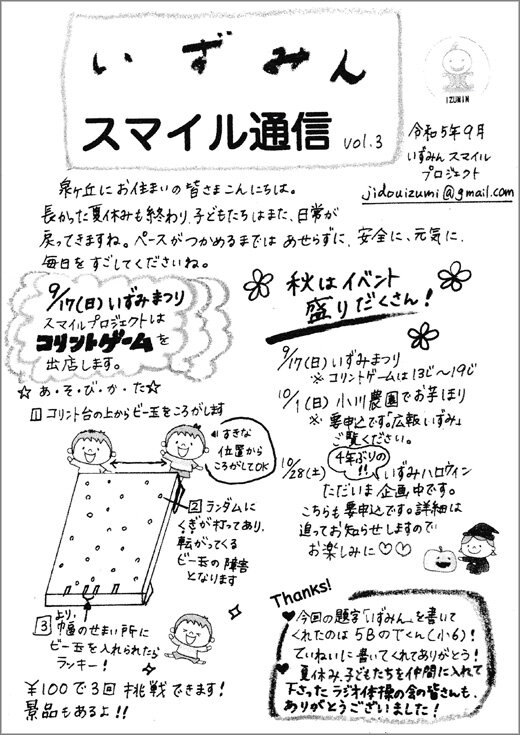 いずみん
スマイル通信 vol.3
IZUMIN
令和5年9月
いずみんスマイル
プロジェクト
jidouizumi@gmail.com
泉ヶ丘にお住まいの皆さまこんにちは。
長かった夏休みも終わり、子どもたちはまた、日常が
戻ってきますね。ペースがつかめるまでは あせらずに、安全に、元気に、
毎日をすごしてくださいね。
9/17(日)いずみまつり
スマイルプロジェクトは
コリントゲームを
出店します。
☆ あ・そ・び・か・た☆
1 コリント台の上からビー玉をころがします
すきな
位置から
ころがしてOK
2 ランダムに
くぎが打ってあり、
転がってくる
ビー玉の障害
となります
3 より、巾の せまい所に
ビー玉を入れられたら
ラッキー!
¥100で3回 挑戦できます!
景品もあるよ!!
秋はイベント
盛りだくさん!
9/17(日)いずみまつり
※コリントゲームは13じ〜19じ
10/1(日)小川農園でお芋ほり
※要申込です。「広報いずみ」
ご覧ください。
10/28(土) 4年ぶりの!! いずみハロウィン
ただいま企画中です。
こちらも要申込です。詳細は
追ってお知らせしますので
お楽しみに♡♡
Thanks!
♥今回の題字「いずみん」を書いて
くれたのは5BのTくん(小6)!
ていねいに書いてくれてありがとう!
♥夏休み、子どもたちを仲間に入れて
下さったラジオ体操の会の皆さんも、
ありがとうございました!